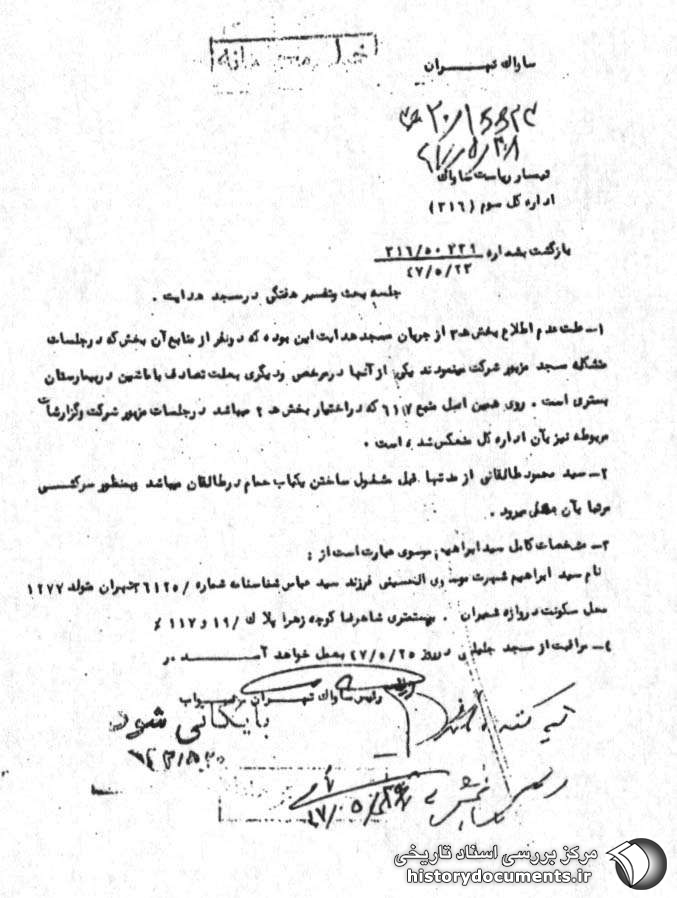 خیلی محرمانه
ساواک تهران
تیمسار ریاست ساواک
اداره کل سوم (۳۱۶)
بازگشت بشماره ۳۱۶/۵۰۲۳۹
۴۷/۵/۲۳
جلسه بحث وتفسیر هفتگی در مسجد هدایت .
۱ــ علت عدم اطلاع بخش ه۳ از جریان مسجد هدایت این بوده که دونفر از منابع آن بخش که در جلسات
متشکله مسجد مزبور شرکت مینمودند یکی از آنها در مرخصی ودیگری بعلت تصادف با ماشین در بیمارستان
بستری است . روی همین اصل منبع ۶۱۷ که در اختیار بخش ه ۲ میباشد در جلسات مزبور شرکت وگزارشات
مربوطه نیز بآن اداره کل منعکس شده است .
۲ــ سید محمود طالقانی از مدتها قبل مشغول ساختن یکباب حمام در طالقان میباشد وبمنظور سرکشی
مرتبا بآن محل میرود .
۳ــ مشخصات کامل سید ابراهیم موسوی عبارت است از :
نام سید ابراهیم شهرت موسوی الحسینی فرزند سید عباس شناسنامه شماره تهران متولد ۱۲۷۷
محل سکونت دروازه شمیران . بیستمتری شاهرضا کوچه زهرا پلاک ۱۹/ و ۱۱۷
۴ــ مراقبت از مسجد جلیلی در روز ۴۷/۵/۲۵ بعمل خواهد آمد
رئیس ساواک تهران
بایگانی شود
مرکز بررسی اسناد تاریخی
historydocuments.ir